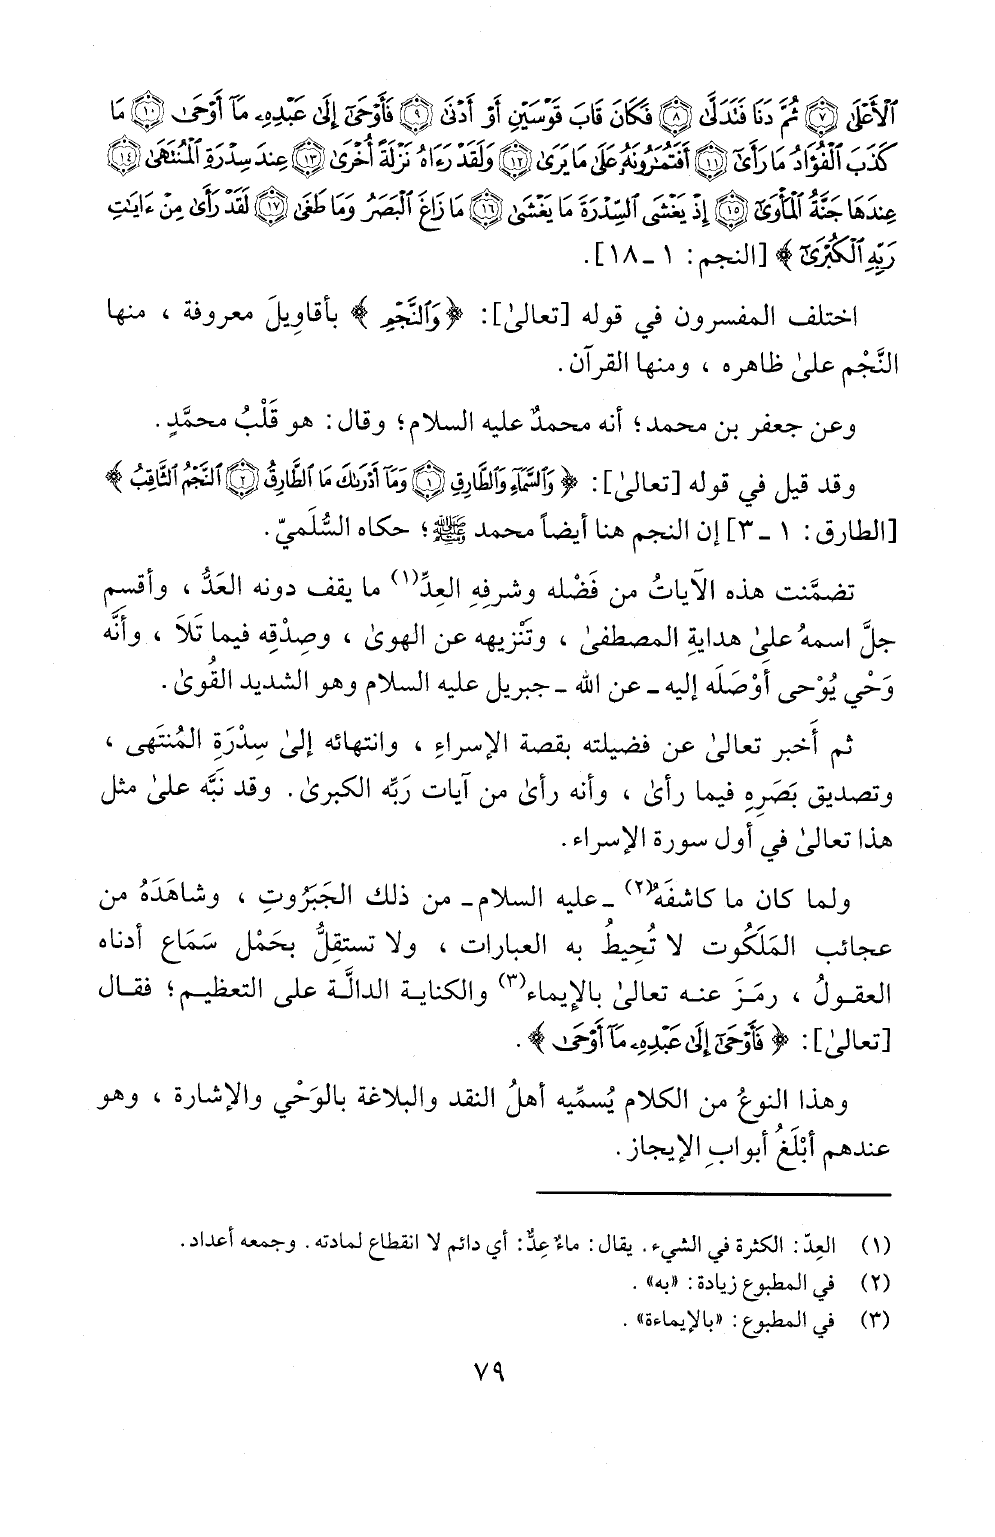 ٱلْأَعْلَىٰ ﴿٧﴾ ثُمَّ دَنَا فَتَدَلَّىٰ ﴿٨﴾ فَكَانَ قَابَ قَوْسَيْنِ أَوْ أَدْنَىٰ ﴿٩﴾ فَأَوْحَىٰٓ إِلَىٰ عَبْدِهِۦ مَآ أَوْحَىٰ ﴿١٠﴾ مَا
كَذَبَ ٱلْفُؤَادُ مَا رَأَىٰٓ ﴿١١﴾ أَفَتُمَٰرُونَهُۥ عَلَىٰ مَا يَرَىٰ ﴿١٢﴾ وَلَقَدْ رَءَاهُ نَزْلَةً أُخْرَىٰ ﴿١٣﴾ عِندَ سِدْرَةِ ٱلْمُنتَهَىٰ ﴿١٤﴾
عِندَهَا جَنَّةُ ٱلْمَأْوَىٰٓ ﴿١٥﴾ إِذْ يَغْشَى ٱلسِّدْرَةَ مَا يَغْشَىٰ ﴿١٦﴾ مَا زَاغَ ٱلْبَصَرُ وَمَا طَغَىٰ ﴿١٧﴾ لَقَدْ رَأَىٰ مِنْ ءَايَٰتِ
رَبِّهِ ٱلْكُبْرَىٰٓ ﴾ [النجم: ١ ـ ١٨].
اختلف المفسرون في قوله [تعالىٰ]: ﴿ وَٱلنَّجْمِ ﴾ بأقاوِيلَ معروفة ، منها
النَّجْم علىٰ ظاهره ، ومنها القرآن.
وعن جعفر بن محمد؛ أنه محمدٌ عليه السلام؛ وقال: هو قَلْبُ محمَّدٍ.
وقد قيل في قوله [تعالىٰ]: ﴿ وَٱلسَّمَآءِ وَٱلطَّارِقِ ﴿١﴾ وَمَآ أَدْرَىٰكَ مَا ٱلطَّارِقُ ﴿٢﴾ ٱلنَّجْمُ ٱلثَّاقِبُ ﴾
[الطارق: ١ ـ ٣] إن النجم هنا أيضاً محمد ﷺ؛ حكاه السُّلَميّ.
تضمَّنت هذه الآياتُ من فَضْله وشرفِهِ العِدِّ(١) ما يقف دونه العَدُّ ، وأقسم
جلَّ اسمهُ علىٰ هدايةِ المصطفىٰ ، وتَنْزيهه عن الهوىٰ ، وصِدْقِه فيما تَلَا ، وأنَّه
وَحْي يُوْحى أوْصَلَه إليه ـ عن الله ـ جبريل عليه السلام وهو الشديد القُوىٰ.
ثم أَخبر تعالىٰ عن فضيلته بقصة الإسراءِ ، وانتهائه إلىٰ سِدْرَةِ المُنتَهى ،
وتصديق بَصَرِهِ فيما رأىٰ ، وأنه رأىٰ من آيات ربِّه الكبرىٰ. وقد نَبَّه علىٰ مثل
هذا تعالىٰ في أول سورة الإسراء.
ولما كان ما كاشفَهُ(٢) ـ عليه السلام ـ من ذلك الجَبَرُوتِ ، وشاهَدَهُ من
عجائب المَلَكُوت لا تُحِيطُ به العبارات ، ولا تستقِلُّ بحَمْل سَمَاع أدناه
العقولُ ، رمَز عنه تعالىٰ بالإيماء(٣) والكناية الدالَّة على التعظيم؛ فقال
[تعالىٰ]: ﴿ فَأَوْحَىٰٓ إِلَىٰ عَبْدِهِۦ مَآ أَوْحَىٰ ﴾.
وهذا النوعُ من الكلام يُسمِّيه أهلُ النقد والبلاغة بالوَحْي والإشارة ، وهو
عندهم أبْلَغُ أبوابِ الإيجاز.
(١) العِدّ: الكثرة في الشيء. يقال: ماءٌ عِدٌّ: أي دائم لا انقطاع لمادته. وجمعه أعداد.
(٢) في المطبوع زيادة: «به».
(٣) في المطبوع: «بالإيماءة».
٧٩